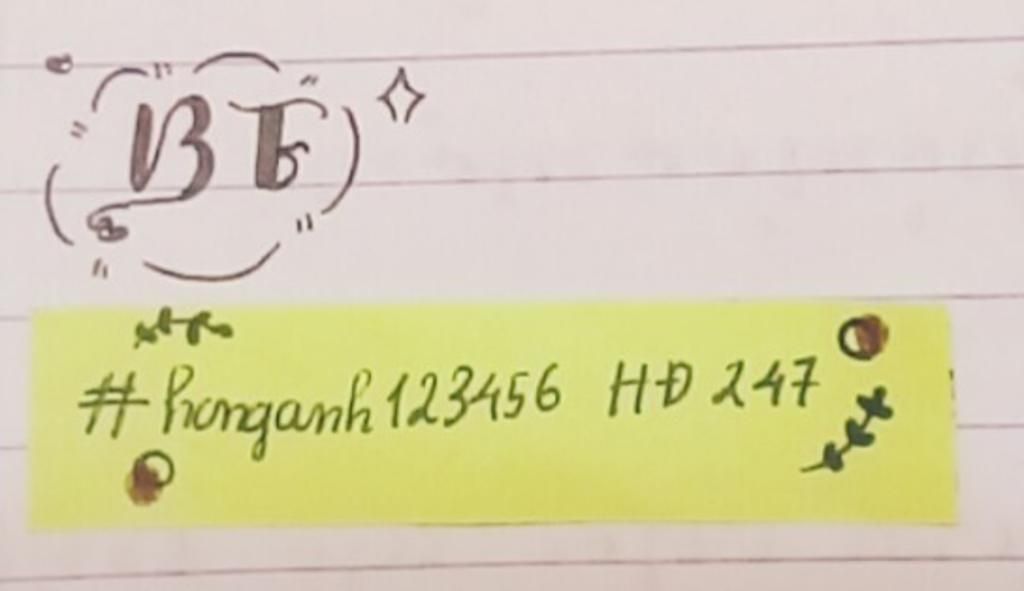 BE
#honganh123456 HĐ 247